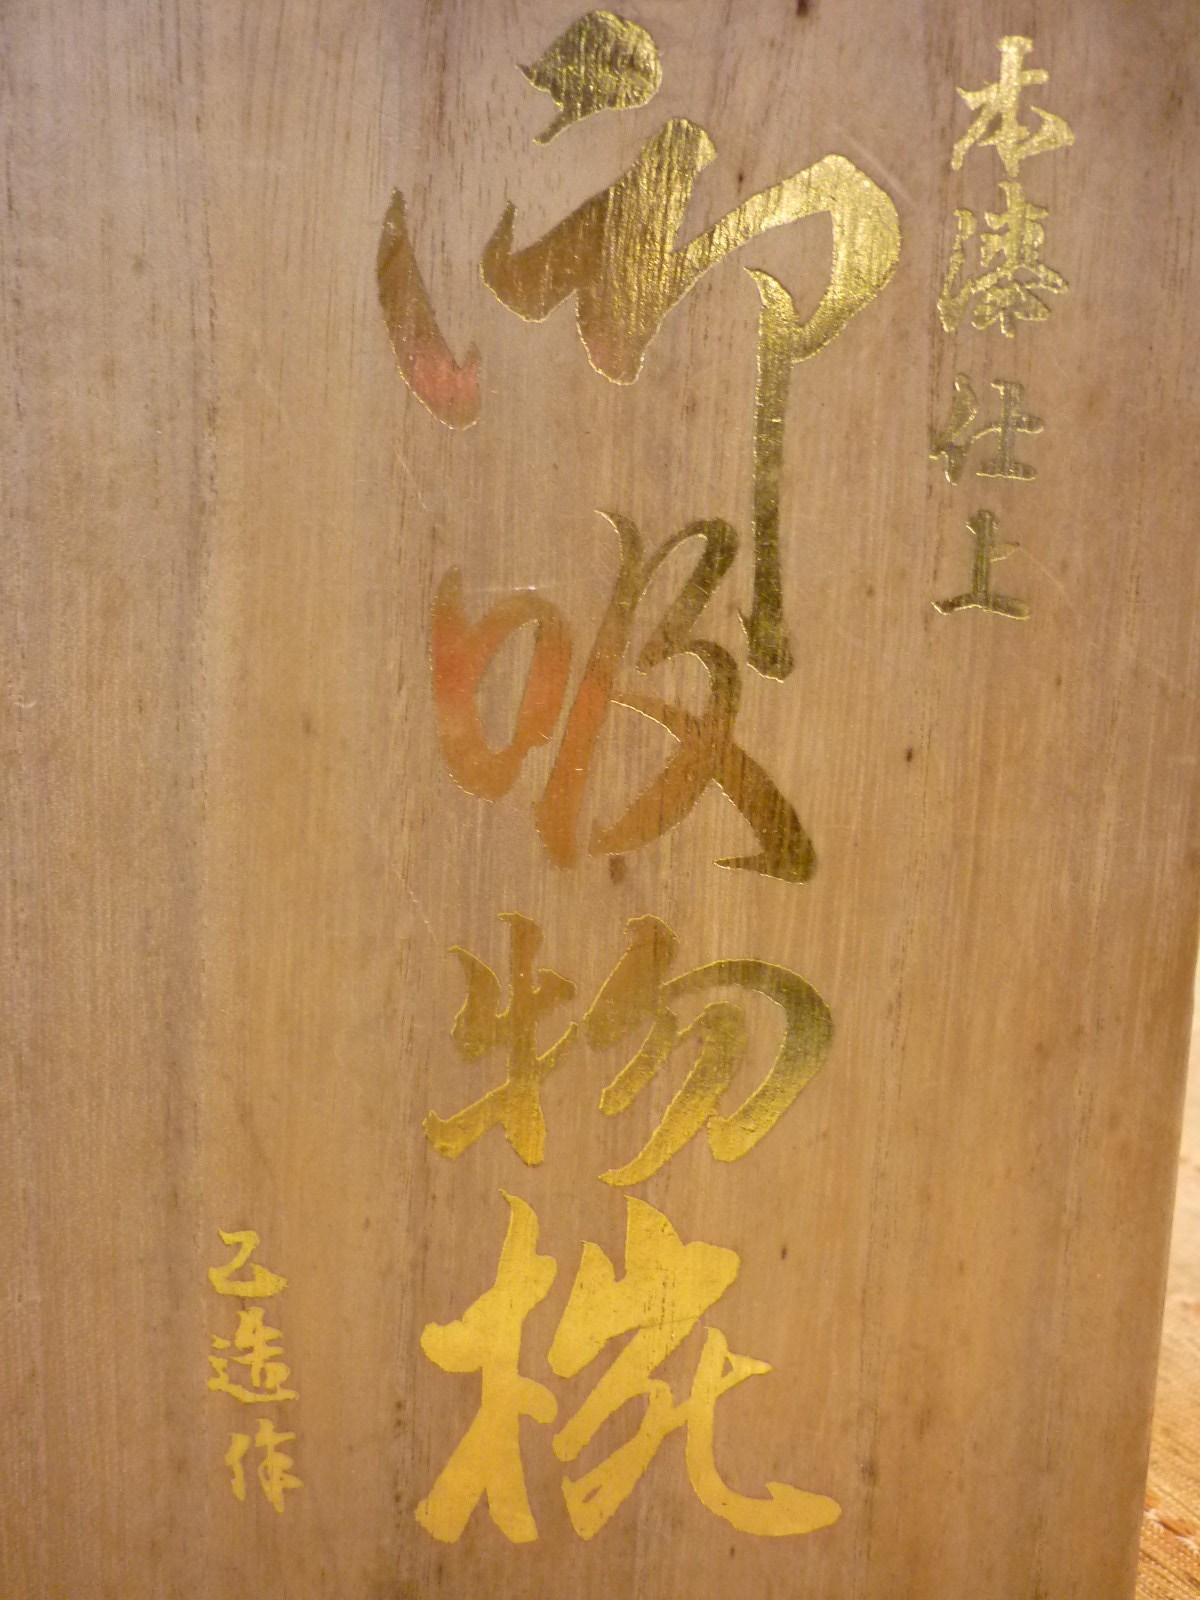 本漆仕上
御吸物椀
乙造作